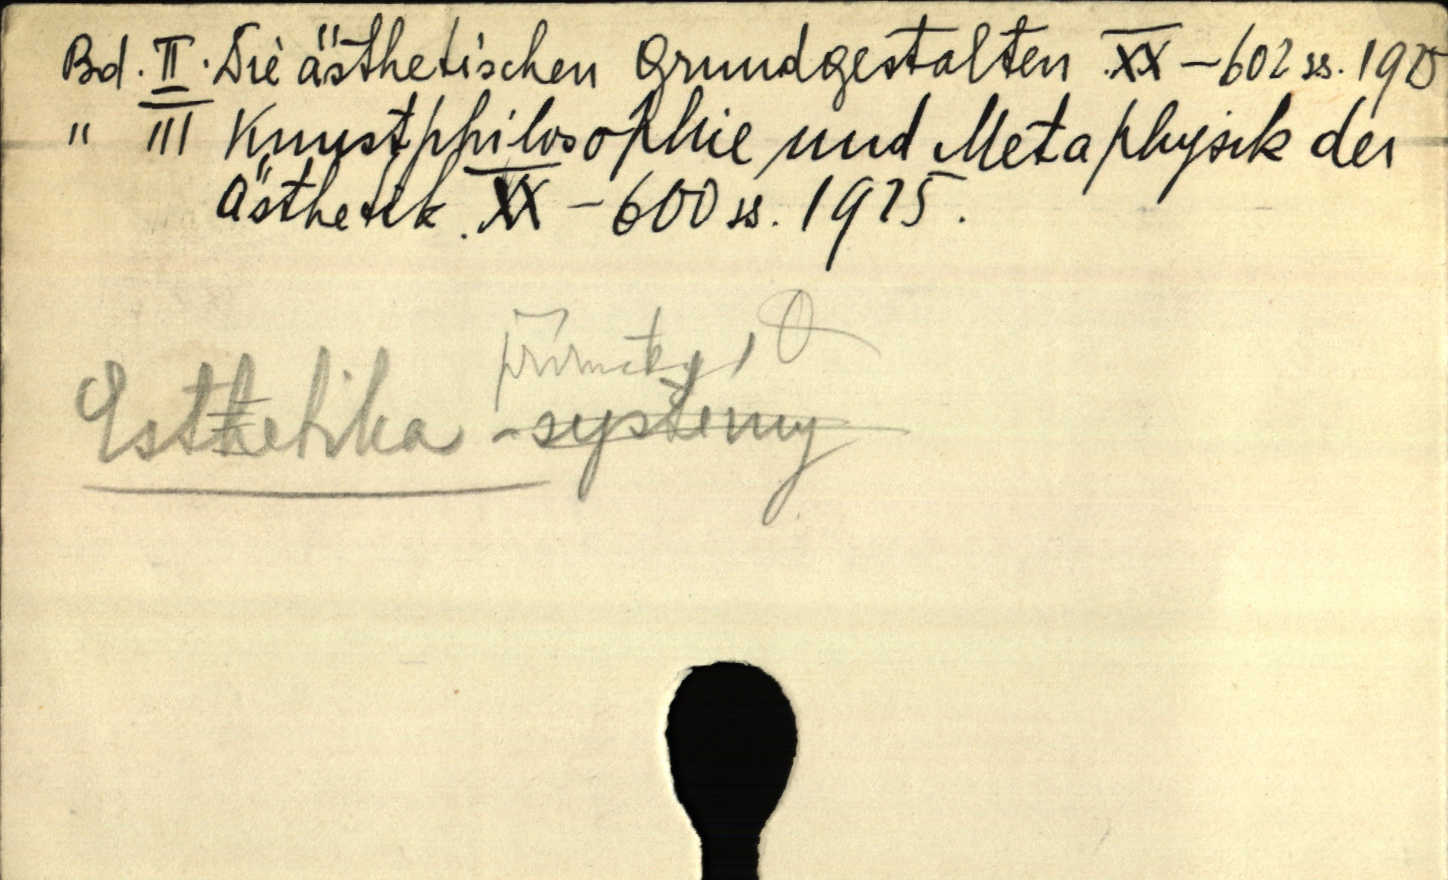 Bd. II. Die ästhetischen Grundgestalten XX – 602 ss. 1925
" III Kunstphilosophie und Metaphysik der
Ästhetik. XX – 600 ss. 1925.
příručky
Esthetika - systemy